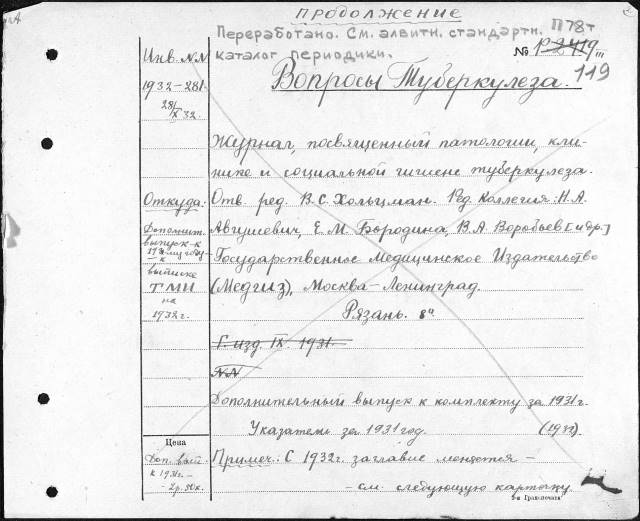 ПРОДОЛЖЕНИЕ
Переработано. См. алвитн. стандартн.
каталог периодики.
П78т
119
Инв. №№
1932-281.
28/IX 32.
Вопросы Туберкулеза.
Журнал, посвященный патологии, кли-
нике и социальной гигиене туберкулеза.
Откуда:
Отв. ред. В.С. Хольцман. Ред. Коллегия: Н.А.
Дополнит.
выпуск к
выписке
ТМИ
на
1932г.
Августевич, Е.М. Бородина, В.А. Воробьев [и др.]
Государственное Медицинское Издательство
(Медгиз), Москва-Ленинград.
Рязань. 8°
Г. изд. IX. 1931.
№№
Дополнительный выпуск к комплекту за 1931г.
Указатель за 1931 год.
Цена
Доп. вып.
к 1931г. -
- 2р. 50к.
Примеч.: С 1932г. заглавие меняется -
- см. следующую карточку